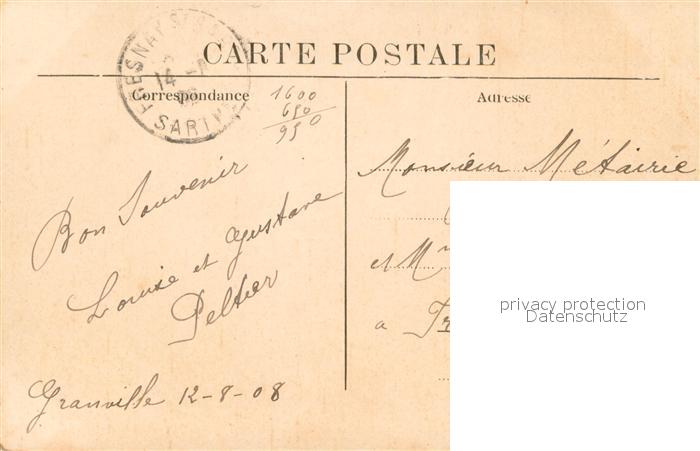 CARTE POSTALE
FRESNAY S
14
SARTHE
Correspondance
1600
650
950
Adresse
Bon Souvenir
Louise et Gustave
Peltier
Granville 12-8-08
Monsieur Métairie
et Mme
a Fr
privacy protection
Datenschutz